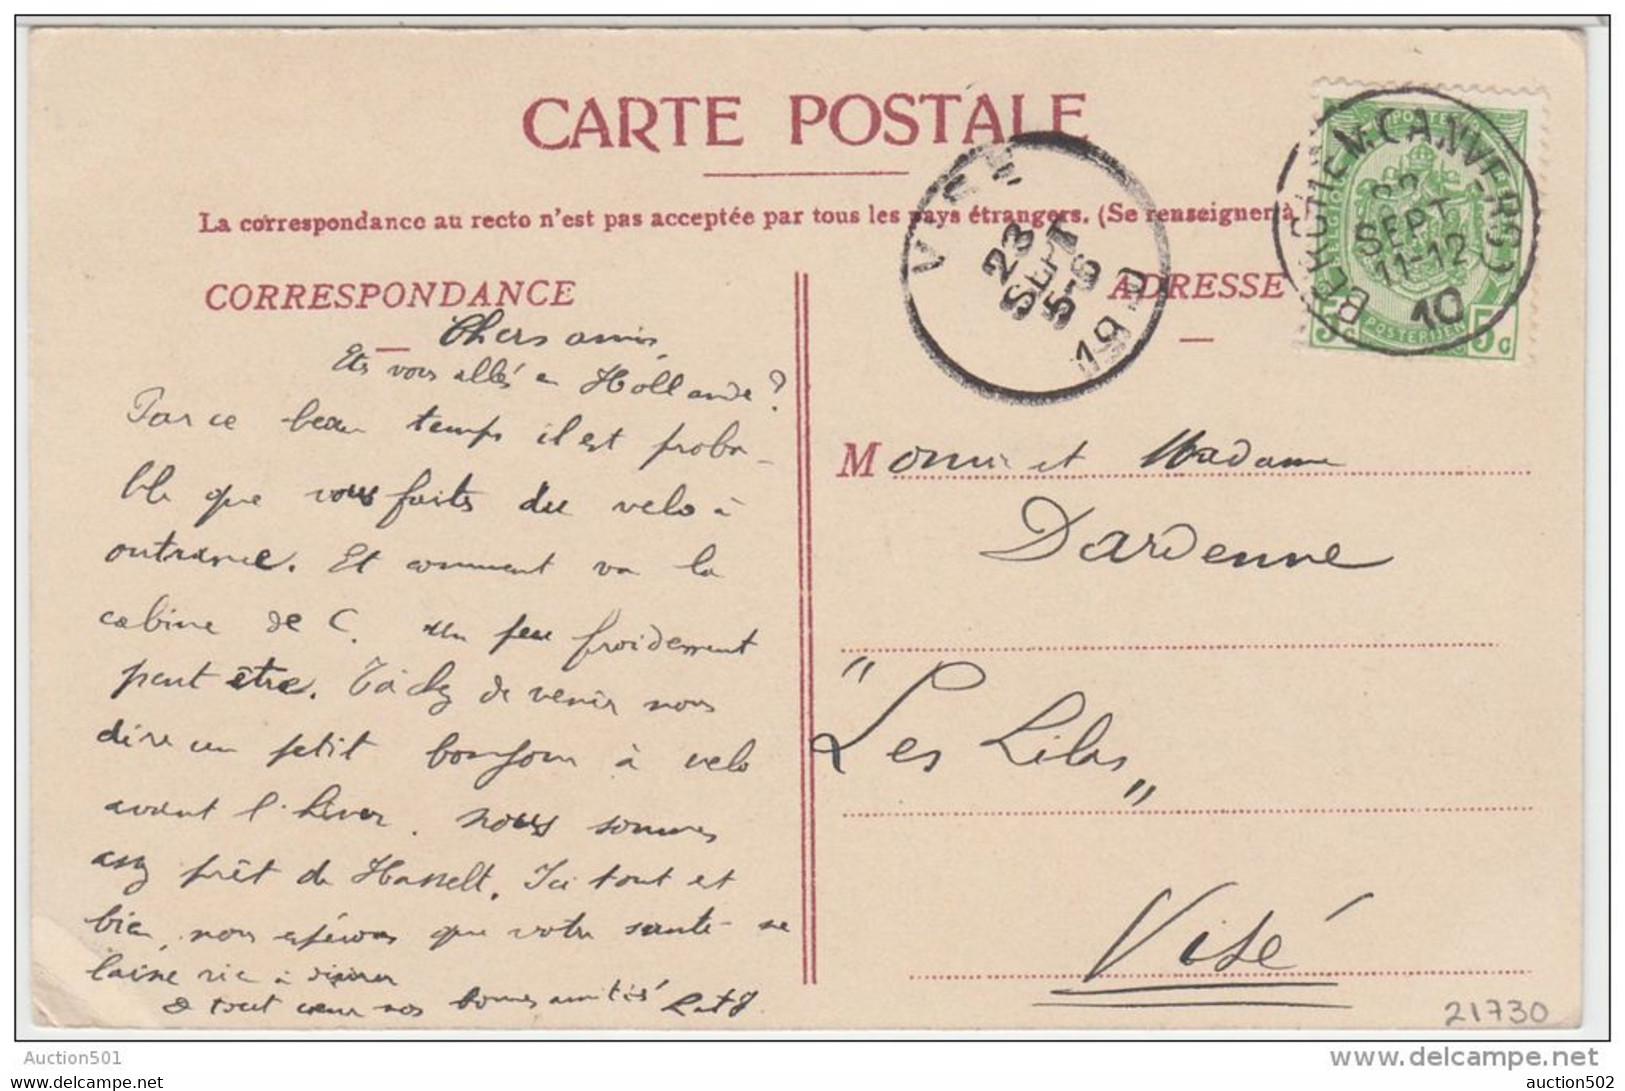 CARTE POSTALE
La correspondance au recto n'est pas acceptée par tous les pays étrangers. (Se renseigner à
CORRESPONDANCE
ADRESSE
VISÉ
23
SEPT
5-6
1910
BERCHEM (ANVERS)
22
SEPT
11-12
10
POSTERIJEN
5c
Chers amis
Ets vous allés en Hollande?
Par ce beau temps il est proba-
ble que vous faits du velo à
outrance. Et comment va la
cabine de C. un peu froidement
peut être. Tâchez de venir nous
dire un petit bonjour à velo
avant l'hiver. Nous sommes
assez prêt de Hasselt. Ici tout et
bien, nous espérons que votre santé ne
laisse rien à désirer
& tout cœur nos bonnes amitiés
Monsr et Madame
Dardenne
"Les Lilas"
Visé
21730
Auction501
www.delcampe.net
auction501
auction502